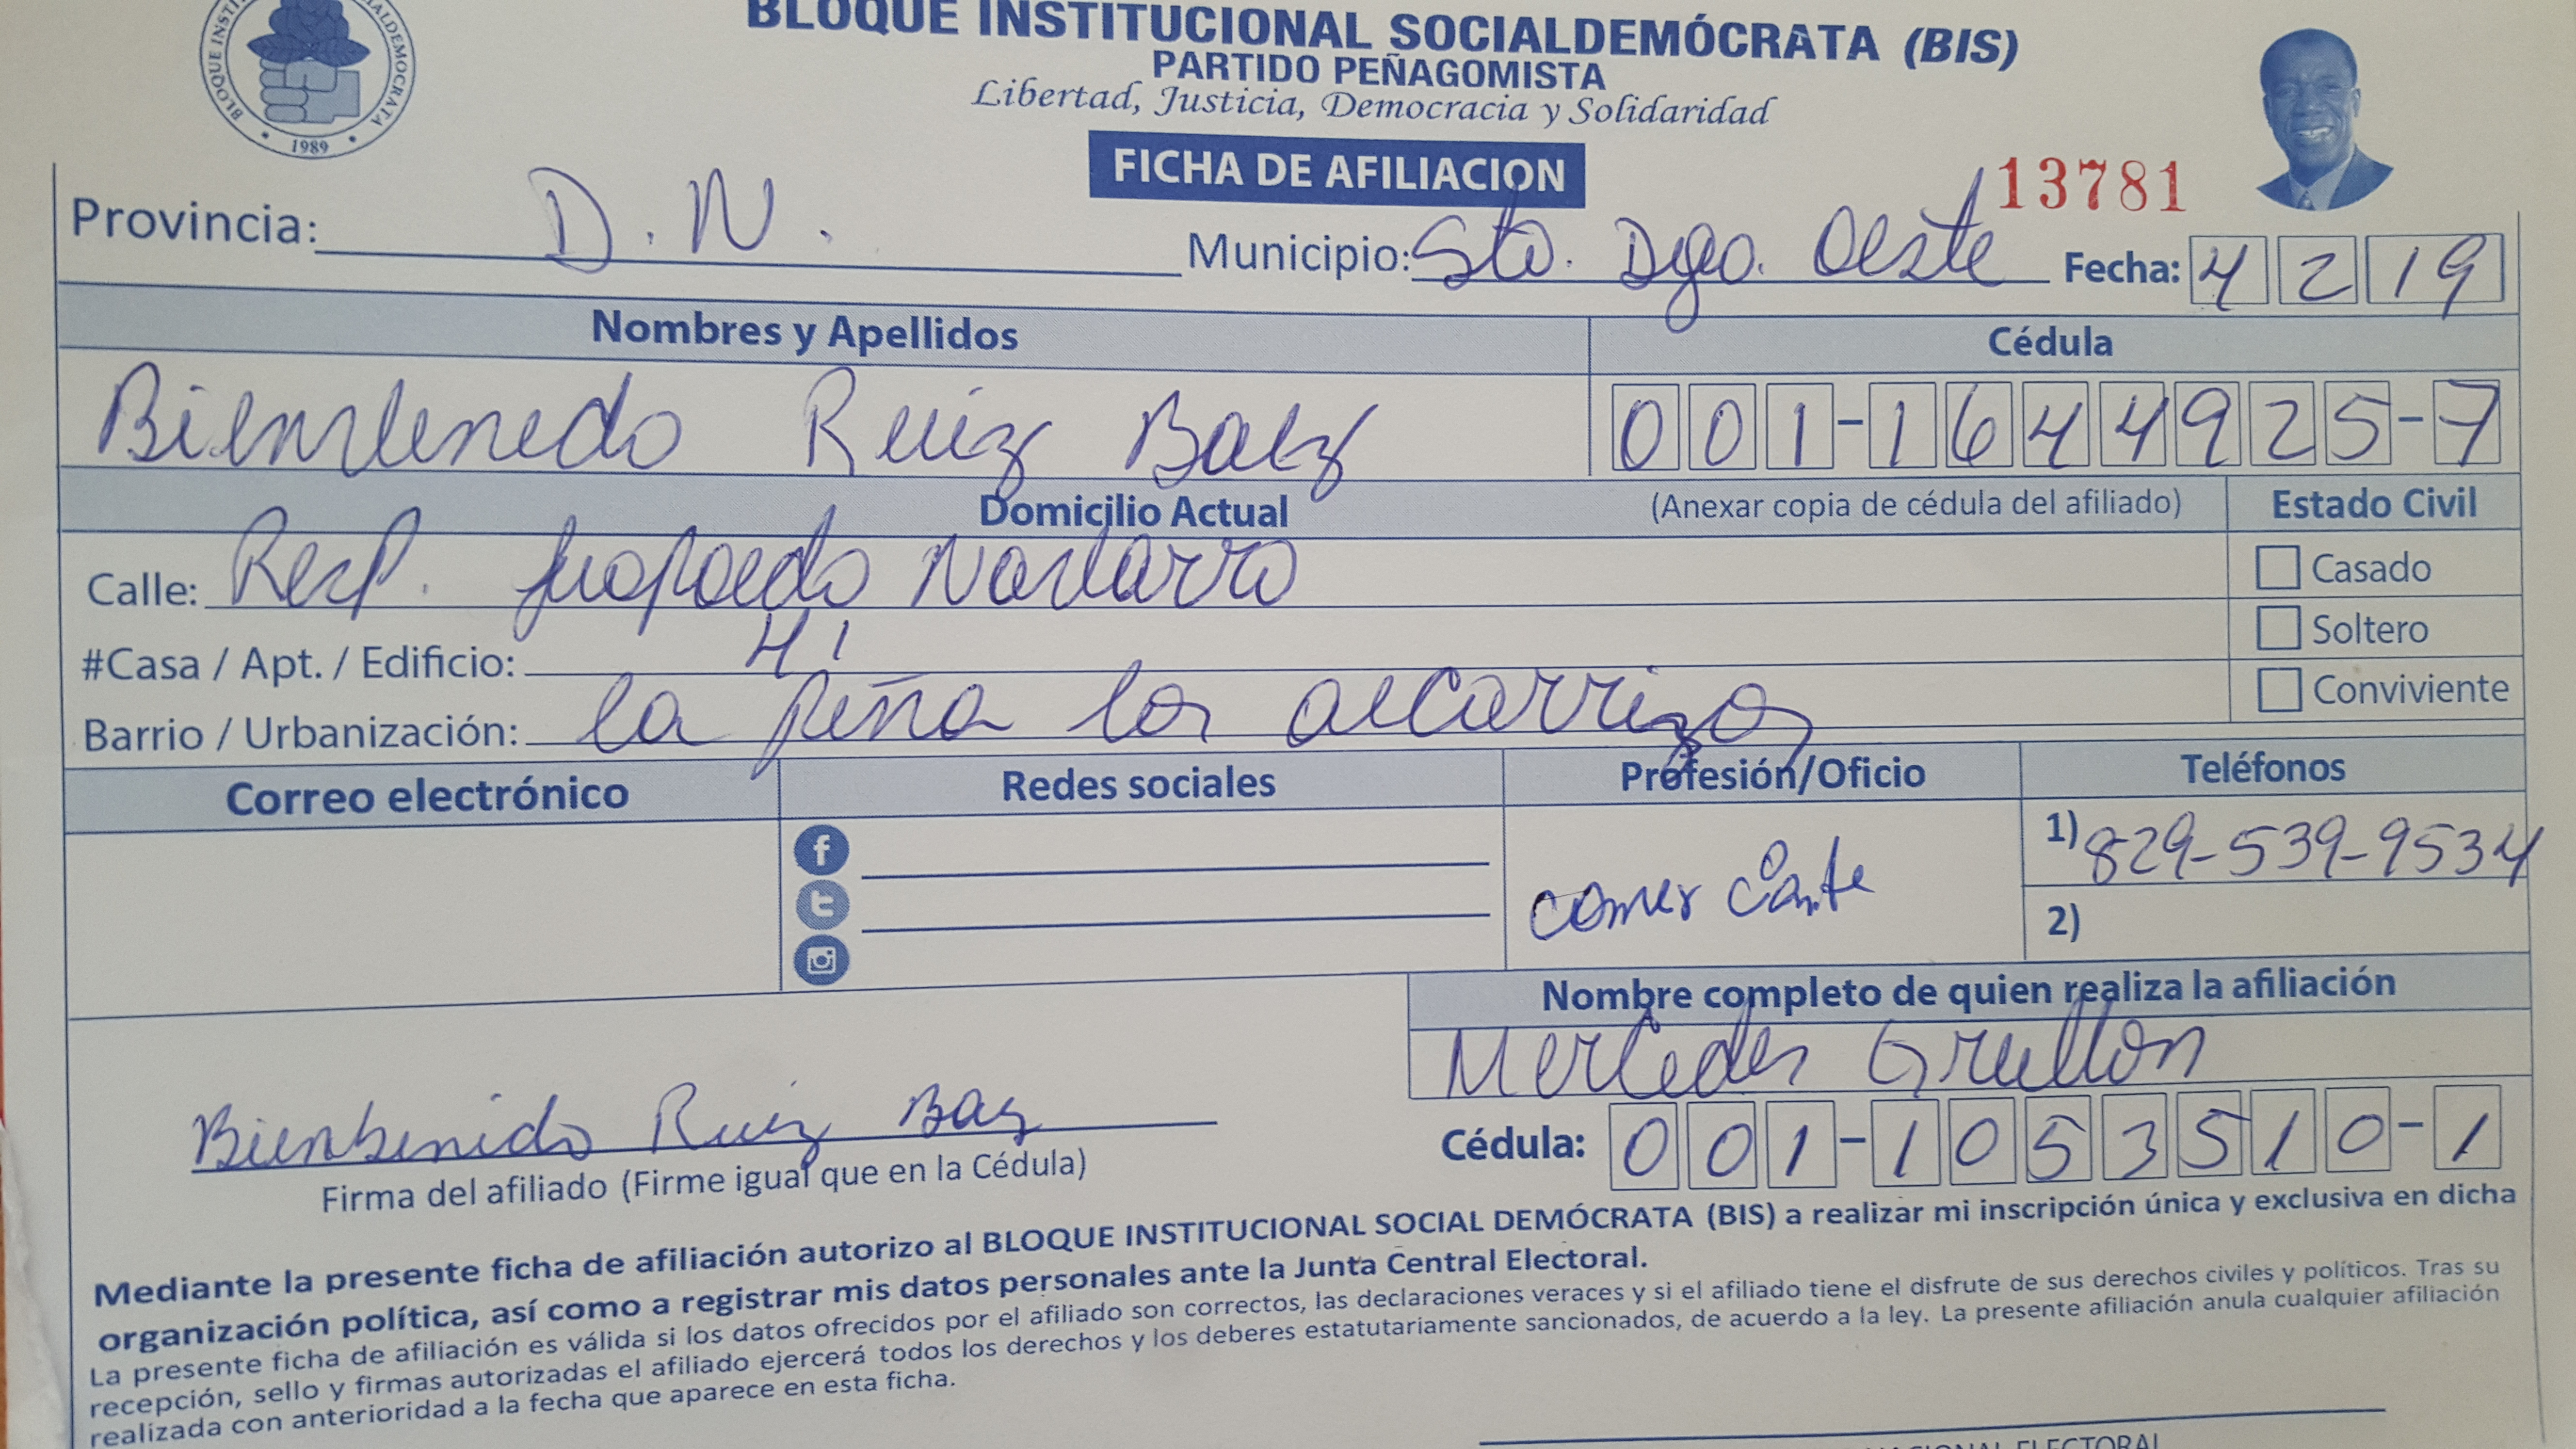 BLOQUE INSTITUCIONAL SOCIALDEMÓCRATA (BIS)
PARTIDO PEÑAGOMISTA
Libertad, Justicia, Democracia y Solidaridad
1989
FICHA DE AFILIACION
13781
Provincia: D. N. Municipio: Sto. Dgo. Oeste Fecha: 4 2 19
Nombres y Apellidos Cédula
Bienvenedo Ruiz Baez 001-1644925-7
Domicilio Actual (Anexar copia de cédula del afiliado) Estado Civil
Calle: Resp. Navarro Casado
#Casa / Apt. / Edificio: 41 Soltero
Barrio / Urbanización: la piña los alcarrizos Conviviente
Correo electrónico Redes sociales Profesión/Oficio Teléfonos
comerciante 1) 829-539-9534
2)
Nombre completo de quien realiza la afiliación
Mercedes Grullon
Bienbenido Ruiz Baz
Cédula: 001-1053510-1
Firma del afiliado (Firme igual que en la Cédula)
Mediante la presente ficha de afiliación autorizo al BLOQUE INSTITUCIONAL SOCIAL DEMÓCRATA (BIS) a realizar mi inscripción única y exclusiva en dicha
organización política, así como a registrar mis datos personales ante la Junta Central Electoral.
La presente ficha de afiliación es válida si los datos ofrecidos por el afiliado son correctos, las declaraciones veraces y si el afiliado tiene el disfrute de sus derechos civiles y políticos. Tras su
recepción, sello y firmas autorizadas el afiliado ejercerá todos los derechos y los deberes estatutariamente sancionados, de acuerdo a la ley. La presente afiliación anula cualquier afiliación
realizada con anterioridad a la fecha que aparece en esta ficha.